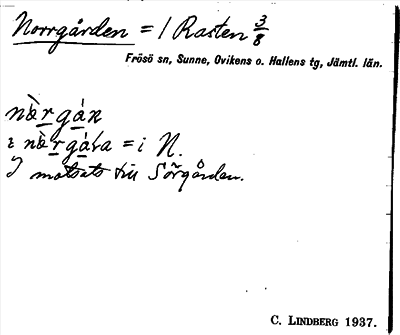 Norrgården = 1 Rasten 3/8
Frösö sn, Sunne, Ovikens o. Hallens tg, Jämtl. län.
nærgán
i = i N.
I motsats till Sörgården.
C. LINDBERG 1937.